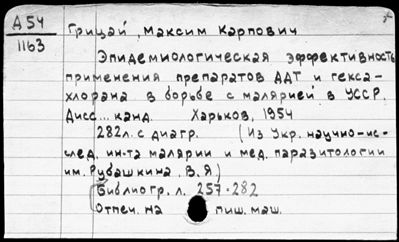 А 54
1163
Грицай, Максим Карпович
Эпидемиологическая эффективность
применения препаратов ДДТ и гекса-
хлорана в борьбе с малярией в УССР.
Дисс... канд. Харьков, 1954
282л. с диагр. (Из Укр. научно-ис-
след. ин-та малярии и мед. паразитологии
им. Рубашкина, В.Я)
(Библиогр. л. 257-282
Отпеч. на пиш. маш.